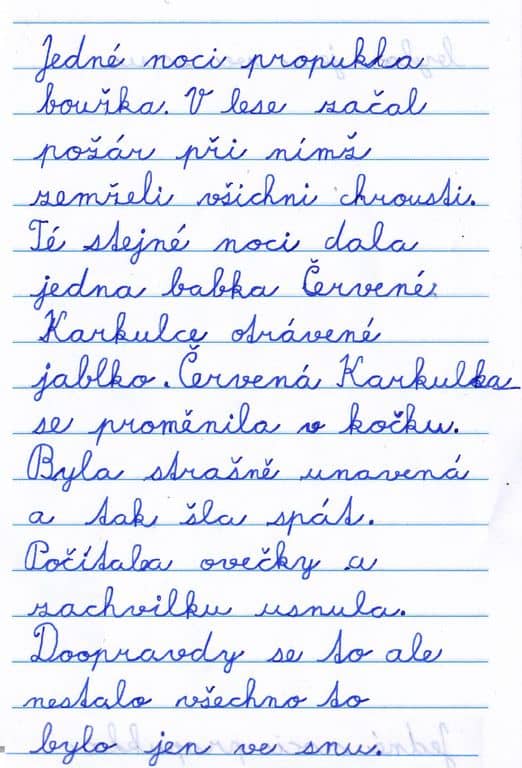 Jedné noci propukla
bouřka. V lese začal
požár při nímž
zemřeli všichni chrousti.
Té stejné noci dala
jedna babka Červené
Karkulce otrávené
jablko. Červená Karkulka
se proměnila v kočku.
Byla strašně unavená
a tak šla spát.
Počítala ovečky a
zachvilku usnula.
Doopravdy se to ale
nestalo všechno to
bylo jen ve snu.